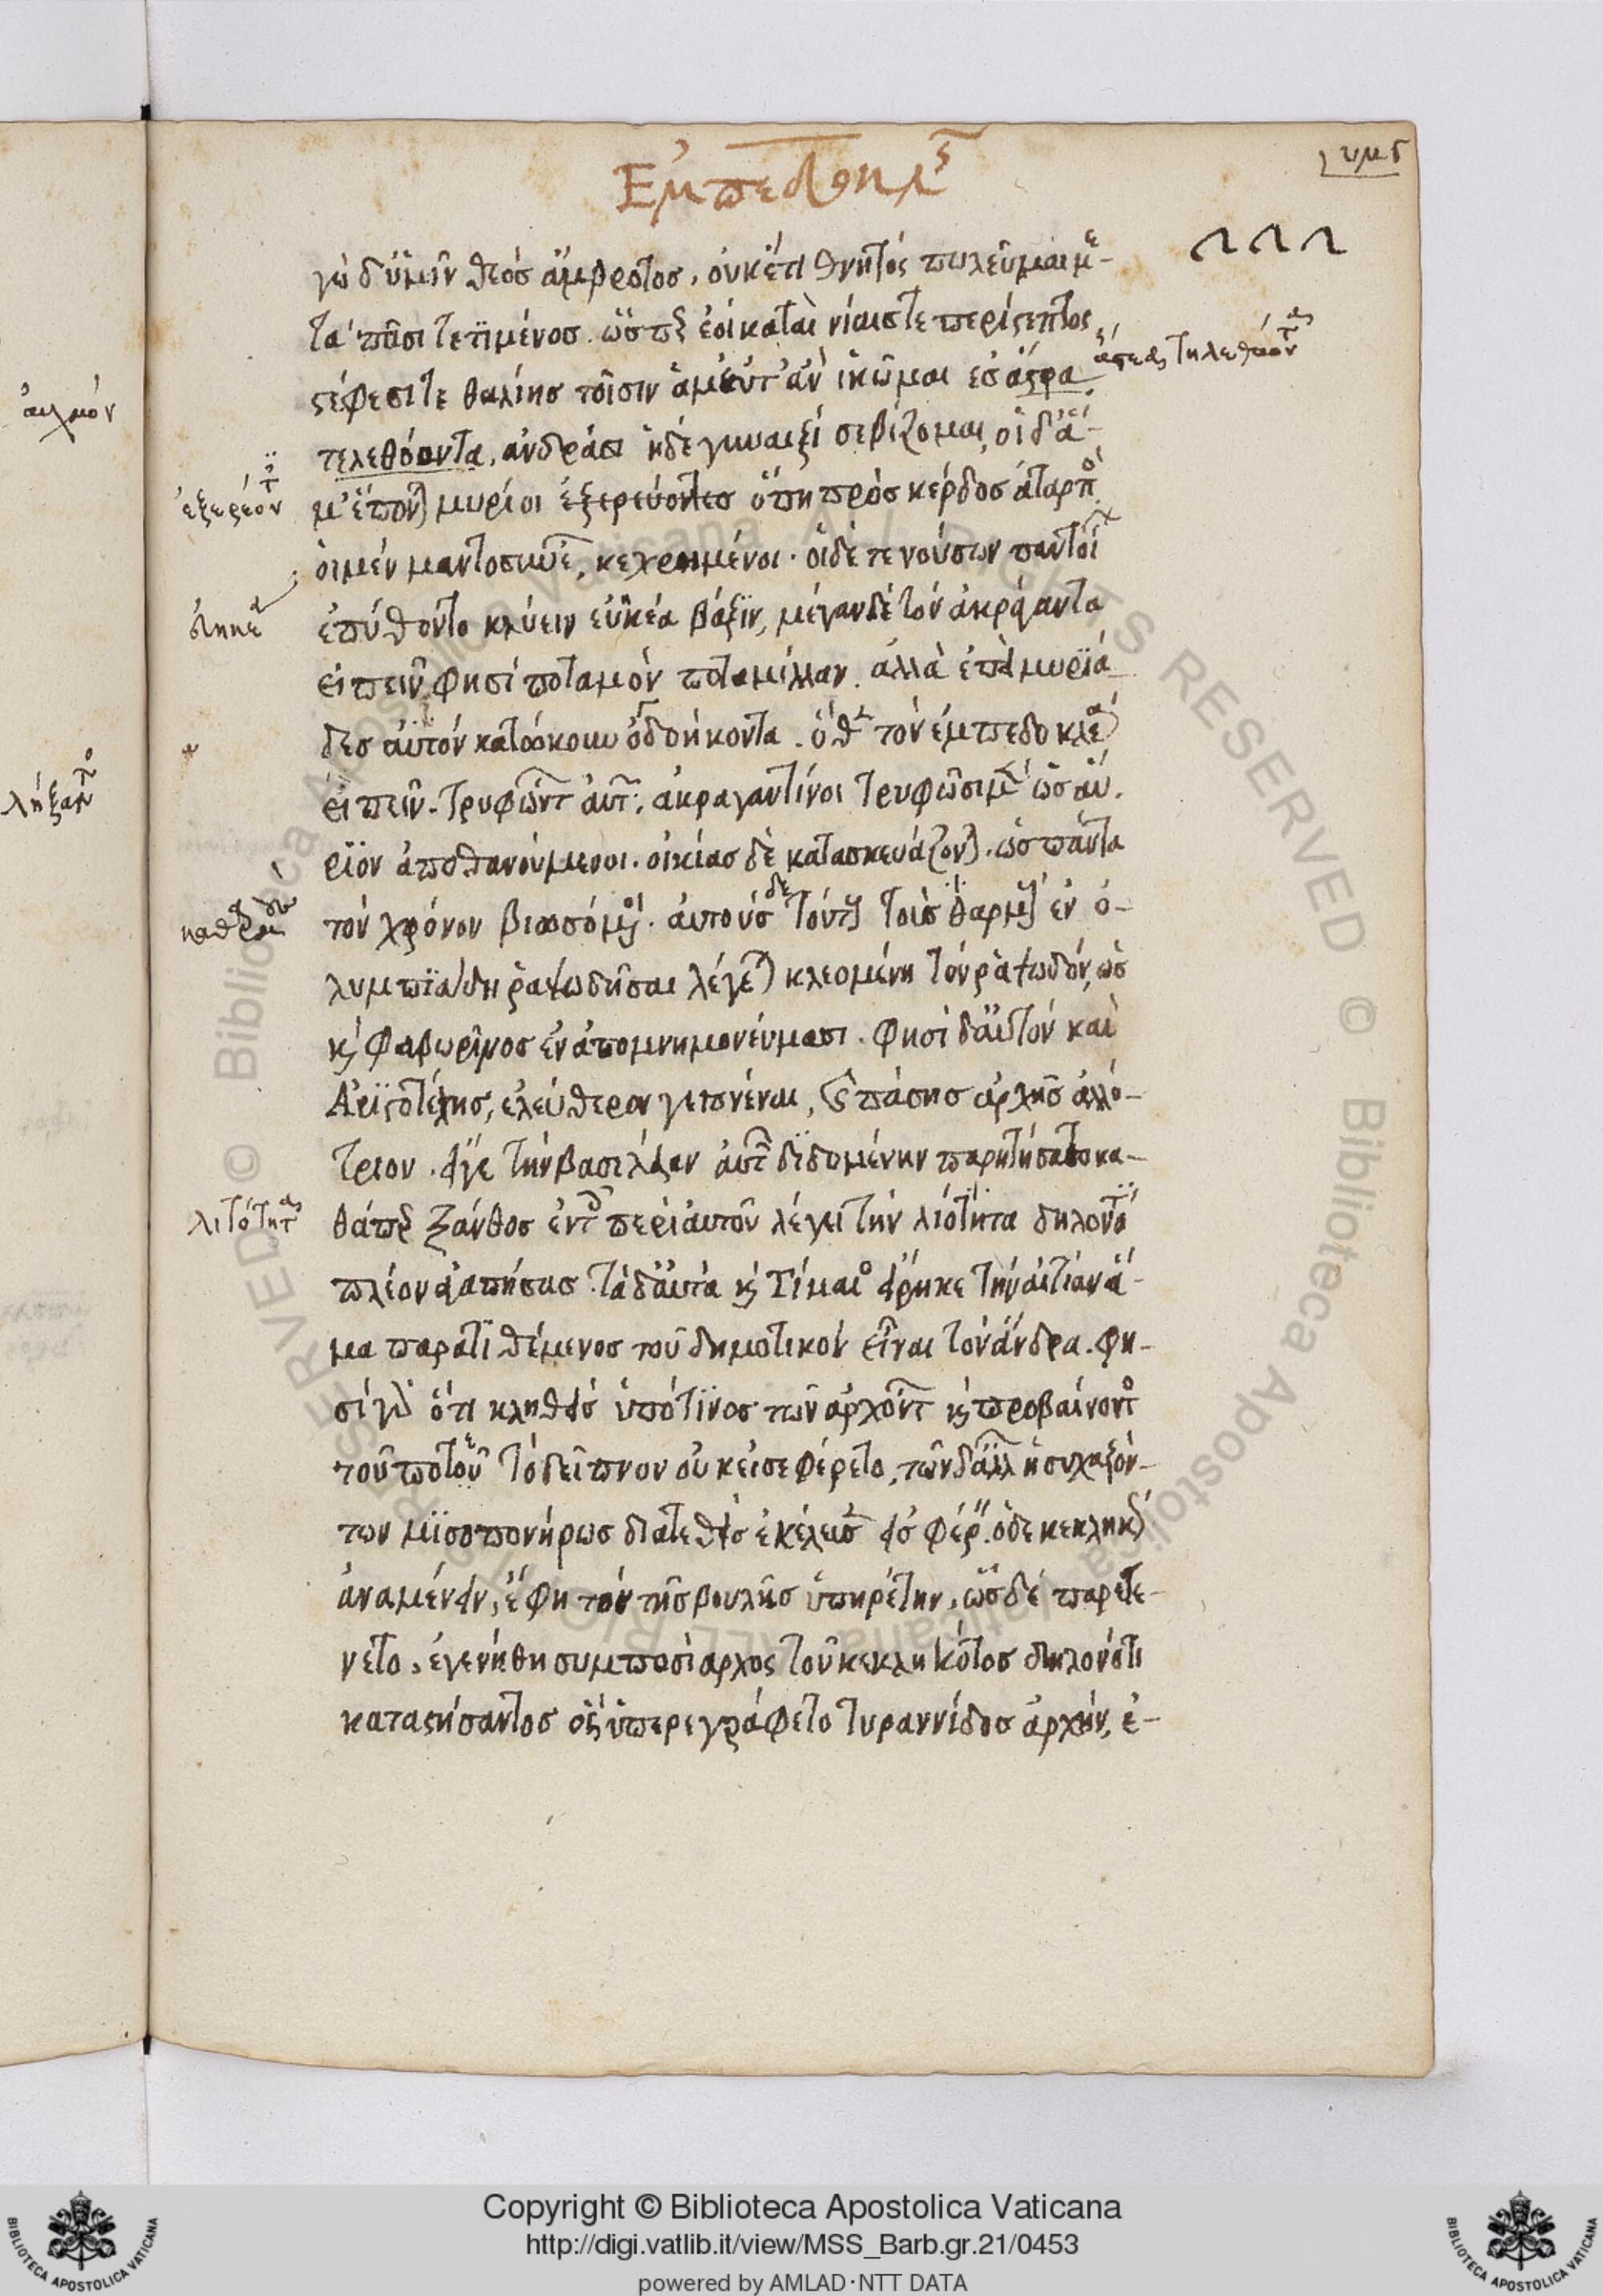 Ἐμπεδοκλ
υμδ
γὼ δ' ὑμῖν θεὸς ἄμβροτος, οὐκέτι θνητὸς πωλεῦμαι με-
τὰ πᾶσι τετιμένος. ὥσπερ ἔοικα ταινίαις τε περίστεπτος
στέφεσί τε θαλίης τοῖσιν ἁμ' εὖτ' ἂν ἱκῶμαι ἐς ἄστρα
ἄστεα τηλεθάοντα
τελεθόοντα, ἀνδράσι ἠδὲ γυναιξὶ σεβίζομαι, οἱ δ' ἅ-
ἐξερέοντ
μ' ἕπονται μυρίοι ἐξερεύοντες ὅπη πρὸς κέρδος ἀταρπὸ
οἱ μὲν μαντοσυνέ, κεχρημένοι. οἱ δέ τε νούσων παντοί
ἐπύθοντο κλύειν εὐηκέα βάξιν, μέγαν δὲ τὸν ἀκράγαντα
εἰπεῖν φησὶ ποταμὸν ποταμίλλαν. ἀλλὰ ἐπεὶ μυριά
δες αὐτὸν κατώκουν ὀγδοήκοντα. ὅθεν τὸν ἐμπεδοκλέα
εἰπεῖν. τρυφώντ αὐτ. ἀκραγαντῖνοι τρυφῶσι μὲν ὡς αὔ.
ριον ἀποθανούμενοι. οἰκίας δὲ κατασκευάζονται. ὡς πάντα
τὸν χρόνον βιωσόμενοι. αὐτοὺς δὲ τούτους τοὺς καθαρμοὺς ἐν ὀ-
λυμπϊάδι ῥαψωδῆσαι λέγεται κλεομένη τὸν ῥαψωδόν, ὡς
κὶ Φαβωρῖνος ἐν ἀπομνημονεύμασι. φησὶ δ' αὐτὸν καὶ
Ἀριστοτέλης, ἐλεύθερον γεγονέναι, καὶ πάσης ἀρχῆς ἀλλό-
τριον. εἴγε τὴν βασιλείαν αὐτῷ διδομένην παρητήσατο κα-
λιτότητα
θάπερ Ξάνθος ἐν τοῖς περὶ αὐτοῦ λέγει τὴν λιότητα δηλονότι
πλέον ἀγαπήσας. τὰ δ' αὐτὰ κὶ Τίμαιος εἴρηκε τὴν αἰτίαν ἅ-
μα παρατιθέμενος τοῦ δημοτικὸν εἶναι τὸν ἄνδρα. φη-
σὶ γὰρ ὅτι κληθεὶς ὑπό τινος τῶν ἀρχόντ κὶ προβαίνοντο
τοῦ ποτοῦ τὸ δεῖπνον οὐκ εἰσεφέρετο, τῶν δ' ἄλλ ἡσυχαζόν-
των μισοπονήρως διατεθεὶς ἐκέλευσ εἰσφέρ. ὁ δὲ κεκληκ
ἀναμένειν, ἔφη τὸν τῆς βουλῆς ὑπηρέτην, ὡς δὲ παρεγε-
νετο, ἐγενήθη συμποσίαρχος τοῦ κεκληκότος δηλονότι
καταστήσαντος ὃς ὑπερεγράφετο τυραννίδος ἀρχήν, ἐ-
αὐχμόν
λήξαντο
Copyright © Biblioteca Apostolica Vaticana
http://digi.vatlib.it/view/MSS_Barb.gr.21/0453
powered by AMLAD·NTT DATA
BIBLIOTECA APOSTOLICA VATICANA
BIBLIOTECA APOSTOLICA VATICANA